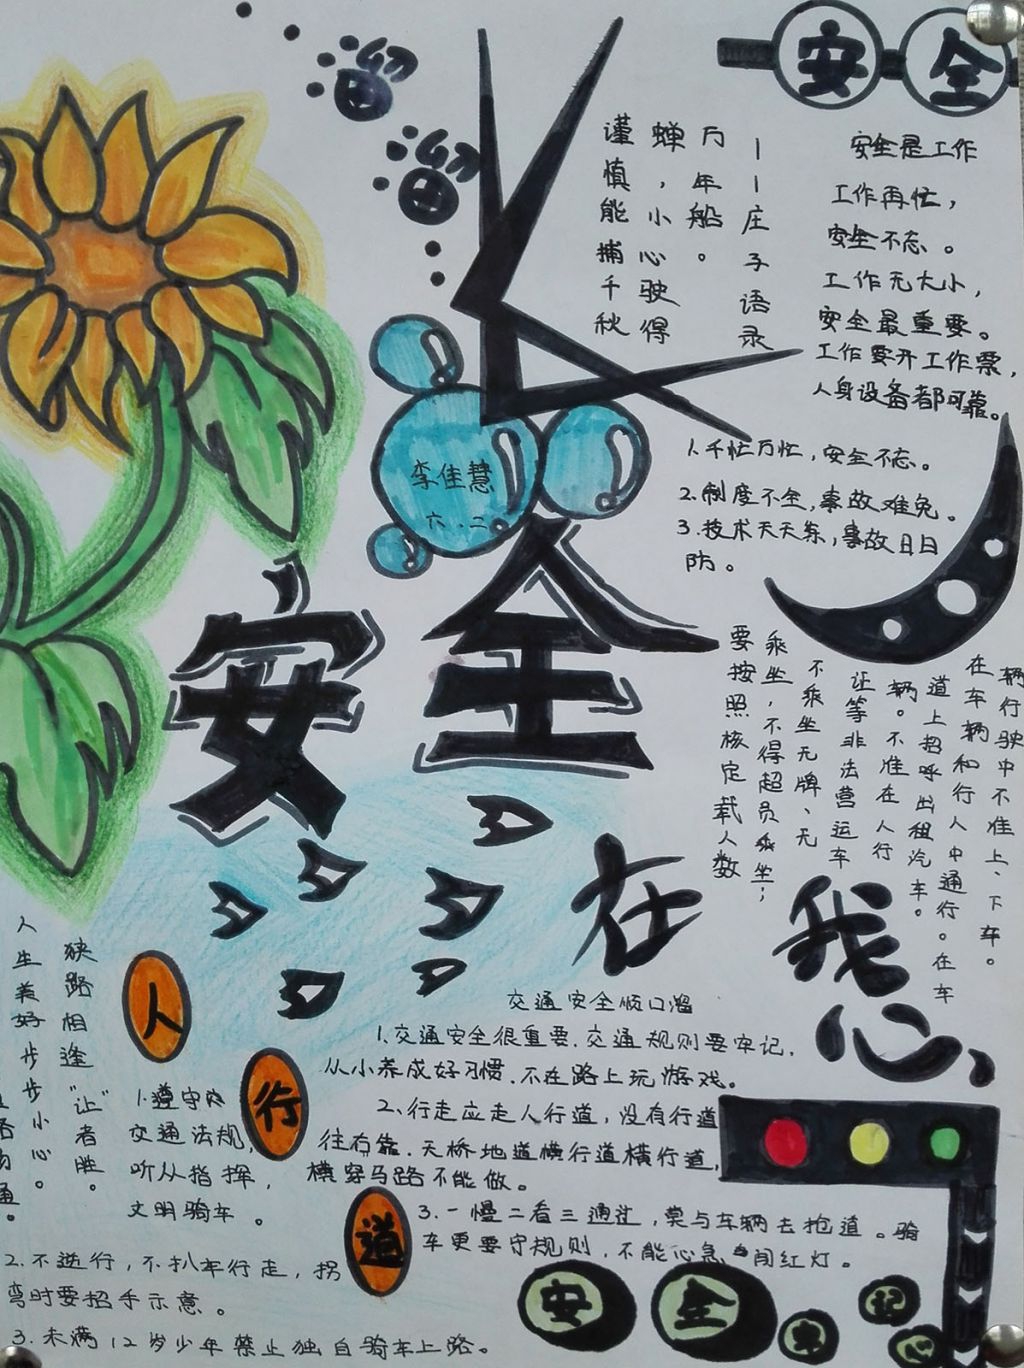 溜
溜
谨慎能捕千秋
蝉，小心驶得
万年船。
——庄子语录
安全
安全是工作
工作再忙，
安全不忘。
工作无大小，
安全最重要。
工作要开工作票，
人身设备都可靠。
1.千忙万忙，安全不忘。
2.制度不全，事故难免。
3.技术天天练，事故日日
防。
李佳慧
六.二
安全
在
我
心
要按照核定载人数
乘坐，不得超员乘坐；
不乘坐无牌、无
让等非法营运车
辆。不准在人行
道上招呼出租汽车。
在车辆和行人中通行。在车
辆行驶中不准上、下车。
狭路相逢"让"者胜。
人生美好步步小心。
人
行
道
1.遵守
交通法规，
听从指挥，
文明骑车。
2.不逆行，不扒车行走，拐
弯时要招手示意。
3.未满12岁少年禁止独自骑车上路。
交通安全顺口溜
1.交通安全很重要.交通规则要牢记，
从小养成好习惯.不在路上玩游戏。
2.行走应走人行道，没有行道
往右靠.天桥地道横行道横行道，
横穿马路不能做。
3.一慢二看三通过，莫与车辆去抢道。骑
车更要守规则，不能心急闯红灯。
安
全
记